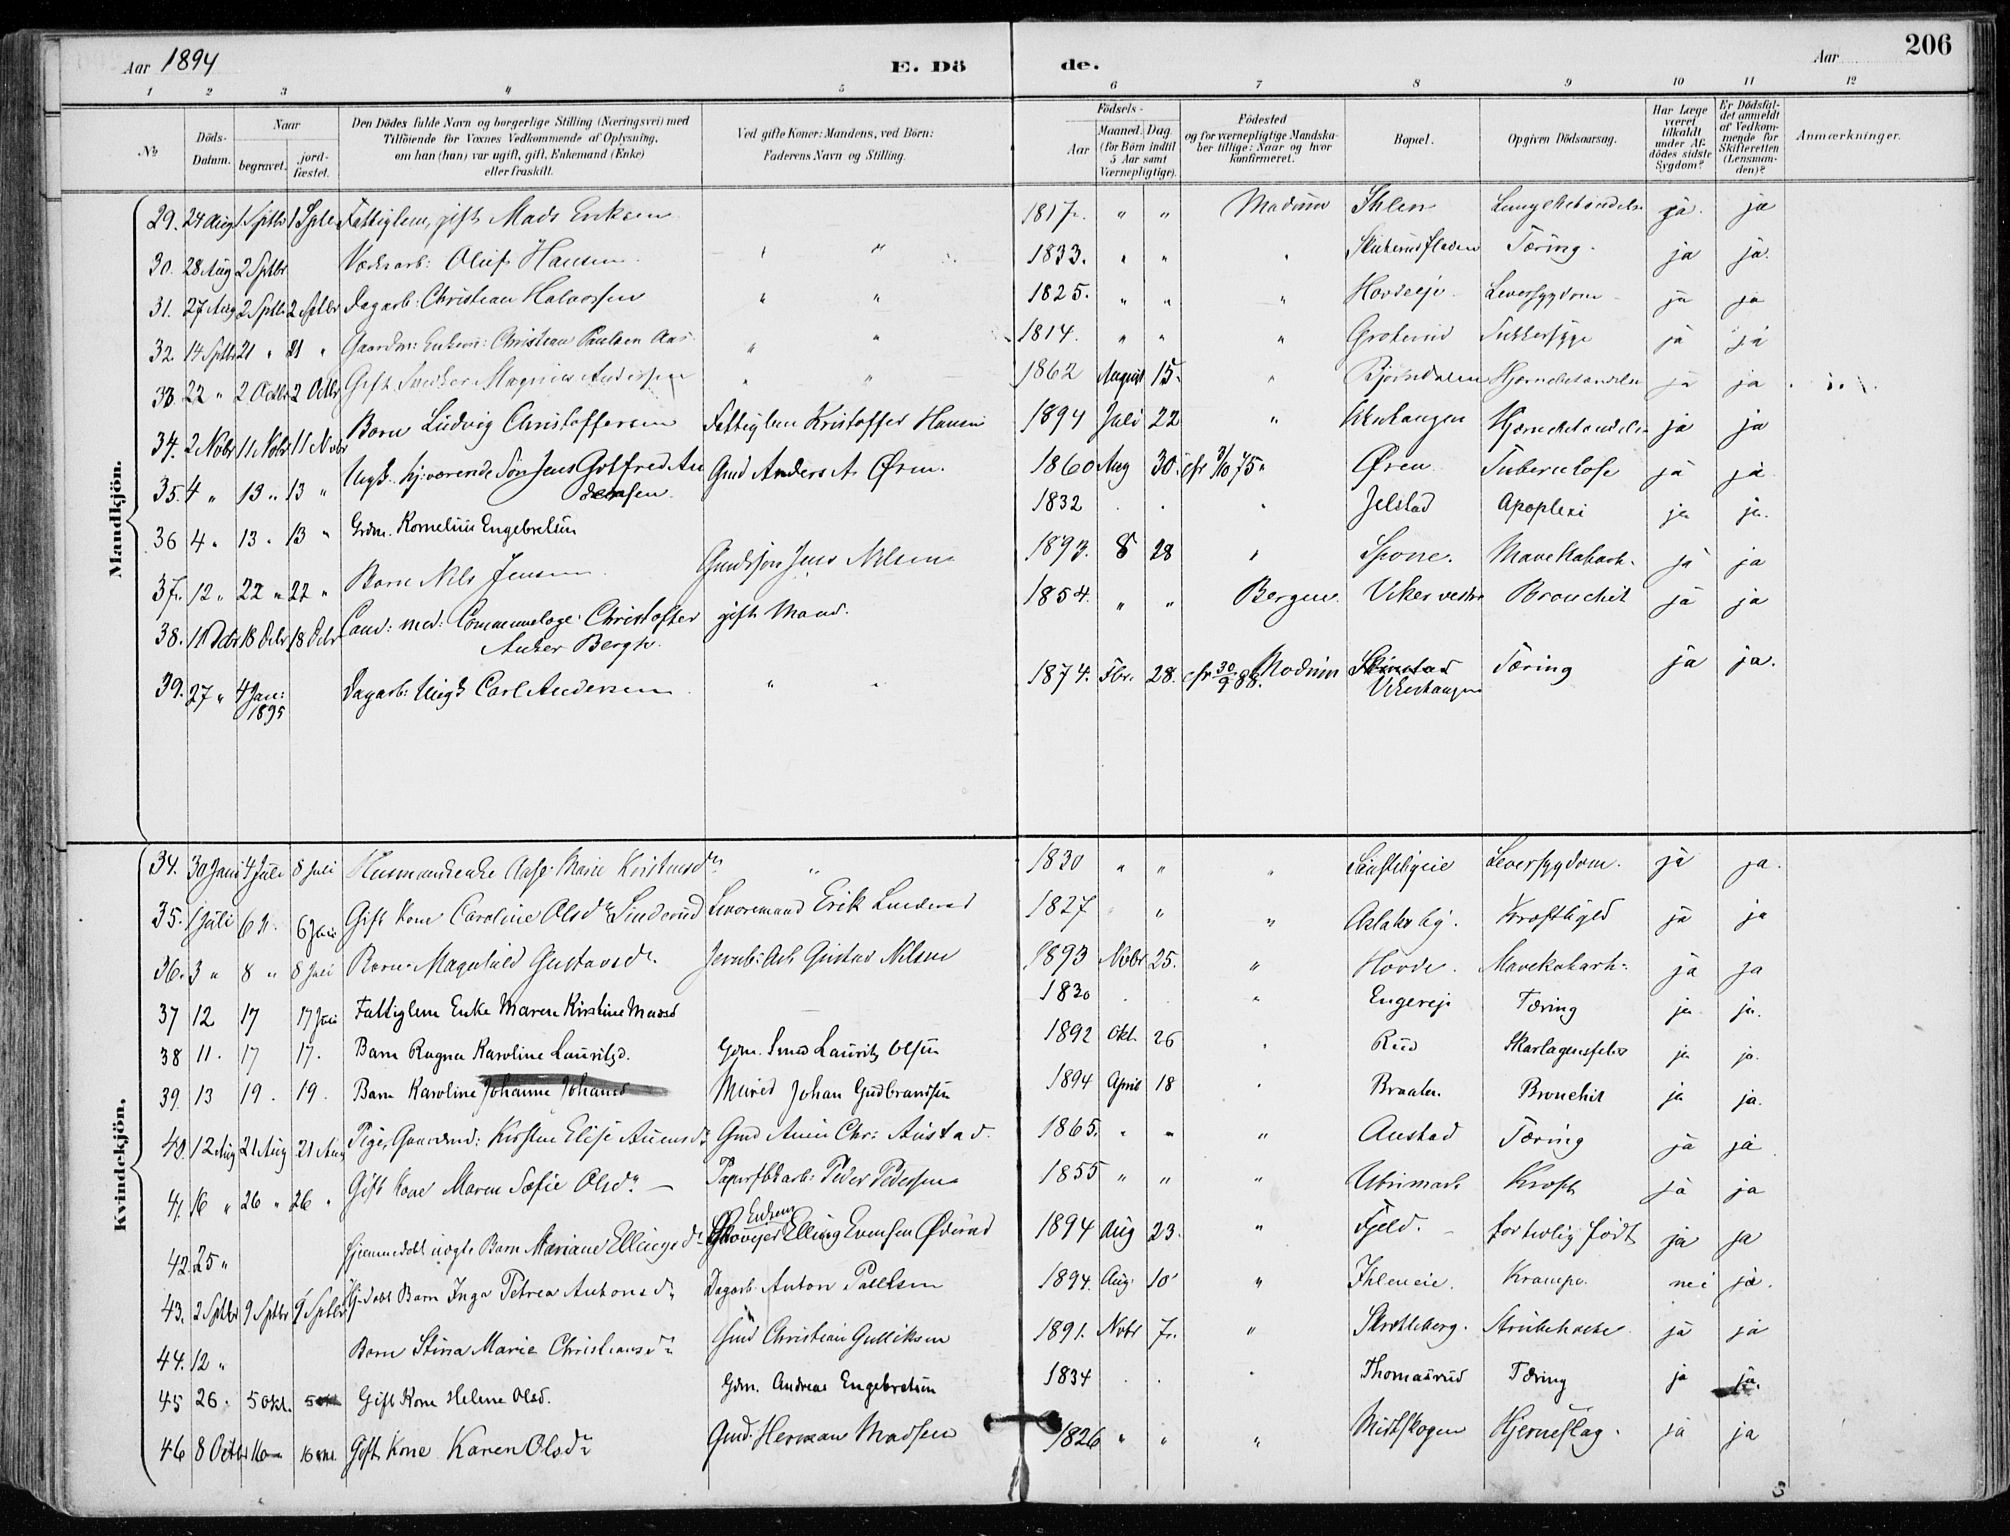 Aar 1894 E. Dö de. Aar 206
1 2 3 4 5 6 7 8 9 10 11 12
No
Döds-Datum.
Naar
begravet. jord-fæstet.
Den Dödes fulde Navn og borgerlige Stilling (Næringsvei) med
Tilföiende for Voxnes Vedkommende af Oplysning,
om han (hun) var ugift, gift, Enkemand (Enke)
eller fraskilt.
Ved gifte Koner: Mandens, ved Börn:
Faderens Navn og Stilling.
Födsels-
Aar Maaned. Dag.
(for Börn indtil
5 Aar samt
Værnepligtige).
Födested
og for værnepligtige Mandska-
ber tillige: Naar og hvor
konfirmeret.
Bopæl.
Opgiven Dödsaarsag.
Har Læge
været
tilkaldt
under Af-
dödes sidste
Sygdom?
Er Dödsfal-
det anmeldt
af Vedkom-
mende for
Skifteretten
(Lensman-
den)?
Anmærkninger.
Mandkjön.
29. 24 Aug 1 Sptbr 1 Sptbr Fattiglem, gift Mads Eriksen 1817. " " Modum Ihlen Lungebetændelse ja ja
30. 28 Aug 2 Sptbr Oluf Hansen " " 1833. " " " Tæring. ja ja.
31. 27 Aug 2 Sptbr 2 Sptbr Dagarb: Christian Halvorsen " " 1825. " " " Hovdeeje Leversygdom ja ja
32. 14 Sptbr 21 " 21 " Gaardm: Enkem: Christian Paulsen Aas " " 1814. " " " Sukkersyge ja ja
33 22 " 2 Octbr 2 Octbr Gift Magnus Andersen " " 1862 August 15. " Bjørndalen Hjernebetændelse ja ja
34. 2 Novbr 11 Novbr 11 Novbr Barn Ludvig Christoffersen Fattiglem Kristoffer Hansen 1894 Juli 22 " Hjernebetændelse ja ja
35. 4 " 13 " 13 " Ugift hj:værende Søn Jens Gotfred An
dersen. Gmd Anders A. Øren. 1860 Aug 30. cfr 3/10 75 " Øren Tuberkulose ja ja
36 4 " 13 " 13 " Grdm. Kornelius Engebretsen 1832 . . " Jelstad Apoplexi ja ja.
37. 12 " 22 " 22 " Barn Nils Jensen Gmdssøn Jens Nilsen 1893. 8 28 " Spone. Mavekatarh. ja ja
38. 11 18 18 Cand: med: Communelæge Christoffer
Anker Bergh. gift Mand. 1854. " " Bergen. Viker vestre Bronchit ja ja
39. 27 " 4 Jan: 1895 Dagarb: Ugift Carl Andersen " " 1874. Fbr. 28. cfr 30/9 88. Modum
Vikerhaugen Tæring ja ja.
Kvindekjön.
34. 30 Juni 4 Juli 8 Juli Husmandsenke Marie Kristensdr " 1830 " " " Leversygdom. ja ja.
35. 1 Juli 6 Juli Gift Kone Caroline Olsdr Linderud Erik Linderud 1827 " " " Aslaksby. Kræftbyld ja ja
36. 3 " 8 " 8 Juli Barn Magnhild Gustavsdr. Jernb: Arb Gustav Nilsen 1893 Novbr 25. " Hovde. Mavekatarh. ja ja
37 12 17 17 Juli Fattiglem Enke Maren Kirstine Madsd 1830 . . " Engereje Tæring ja ja.
38 11. 17 17. Barn Ragna Karoline Lauritzd. Gdm. Lauritz Olsen 1892 Okt. 26 " Rud Skarlagensfeber ja ja.
39. 13 19. 19. Barn Karoline Johanne Johansd Johan Gudbrandsen 1894 April 18 " Braaten. Bronchit ja ja.
40. 12 Aug 21 Aug 21 Aug Pige, Kirsten Elise Gmd Chr: Austad. 1865. " " " Austad Tæring ja ja
41. 16 " 26 " 26 " Gift Kone Maren Sofie Olsdr — Peder Pedersen 1855 " " " Kræft ja ja
42. 25 " Hjemmedøbt uægte Barn Mariane Ellingsdr Enkem
Elling Evensen Øderud 1894 Aug 23. " Fjeld. — fortidlig født ja ja
43. 2 Sptbr 9 Sptbr 9 Sptbr Hj-døbt Barn Inga Petrea Antonsdr Dagarb Anton Paulsen 1894. Aug: 10 " Ihleneie. Krampe. nei ja.
44. 12 " Barn Stina Marie Christiansdr Gmd Christian Gulliksen 1891. Novbr 7. " Skretteberg. Strubehoste ja ja
45 26. 5 okt. 5 okt Gift Kone Helene Olsd. Gdm. Andreas Engebretsen 1834 . . " Thomasrud Tæring ja ja.
46 8 Octbr 16 16 okt. Gift Kone Karen Olsdr Gmd. Herman Madsen 1826 " " " Midtskogen Hjerneslag. ja ja